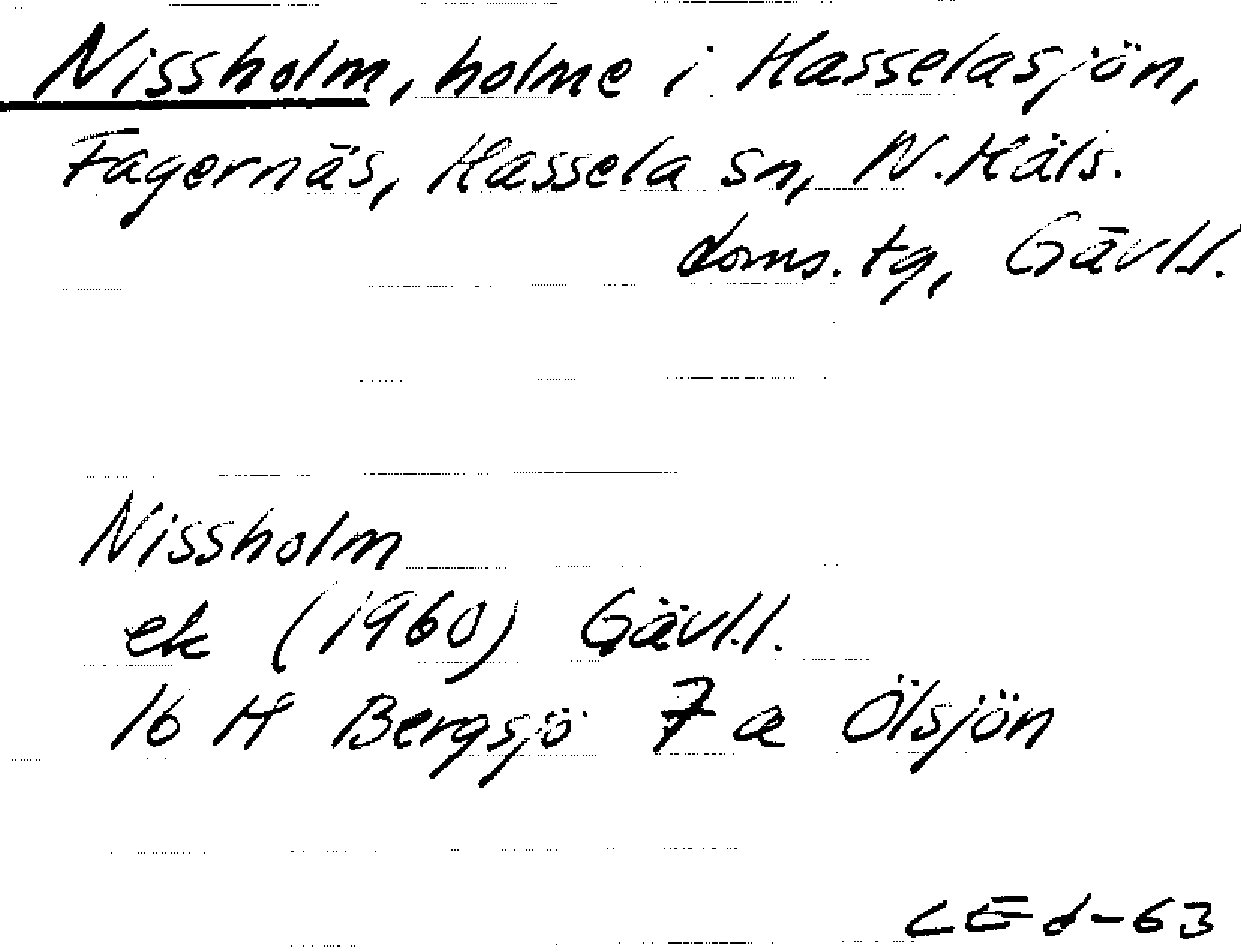 Nissholm, holme i Hasselasjön,
Fagernäs, Hassela sn, N. Häls.
doms. tg, Gävl.l.
Nissholm
ek (1960) Gävl.l.
16 H Bergsjö 7 a Ölsjön
LEd-63